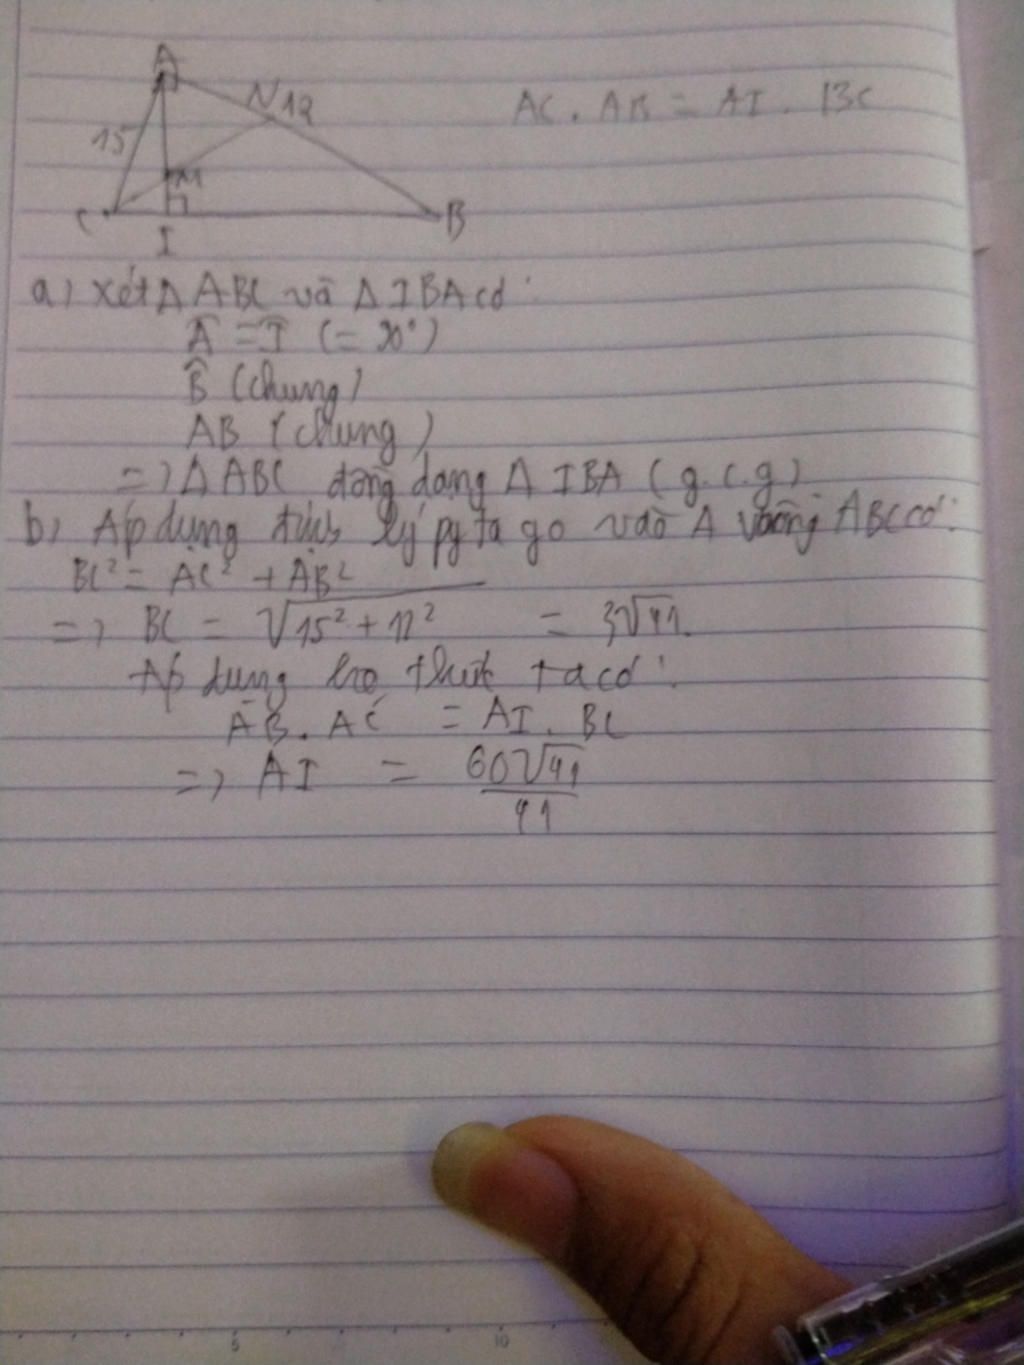 A
15
N 12
M
C
B
I
AC . AB = AI . BC
a) Xét Δ ABC và Δ IBA có:
Â = Î (= 90°)
B̂ (chung)
AB (chung)
=> Δ ABC đồng dạng Δ IBA (g.c.g)
b) Áp dụng định lý pytago vào Δ vuông ABC có:
BC² = AC² + AB²
=> BC = √15² + 12² = 3√41.
Áp dụng hệ thức ta có:
AB . AC = AI . BC
=> AI = 60√41
41
5 10